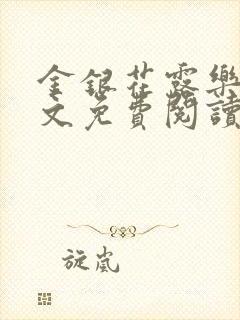 金銀花露樂
文免費閱讀
旋嵐